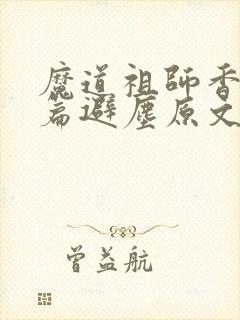 魔道祖師香
篇避塵原文
曾益航